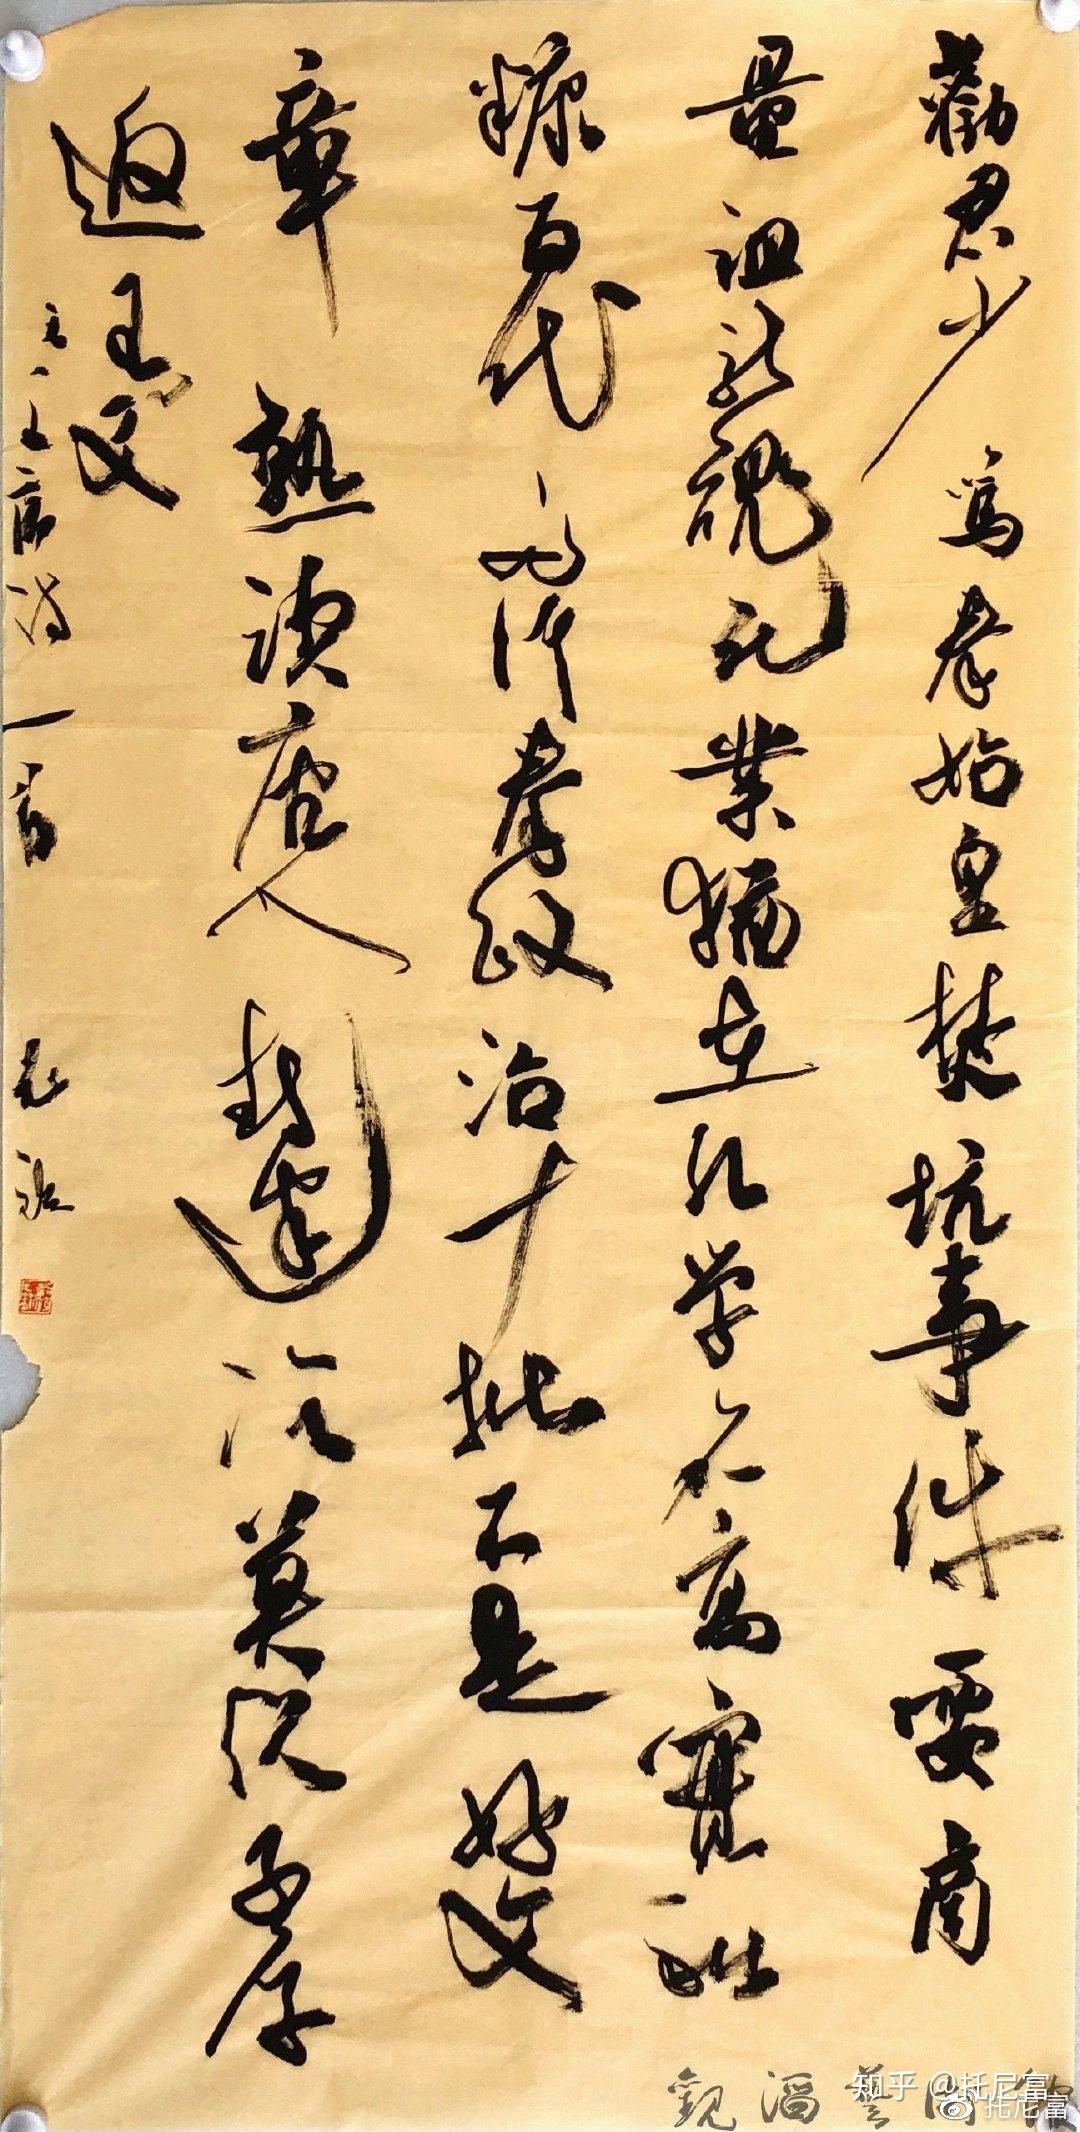 勸君少罵秦始皇焚坑事件要商
量祖龙魂死業猶在孔学名高實秕
糠百代行秦政治十批不是好文
章熟讀唐人封建論莫從子厚
返王文
毛主席诗一首
知乎 @托尼富
托尼富